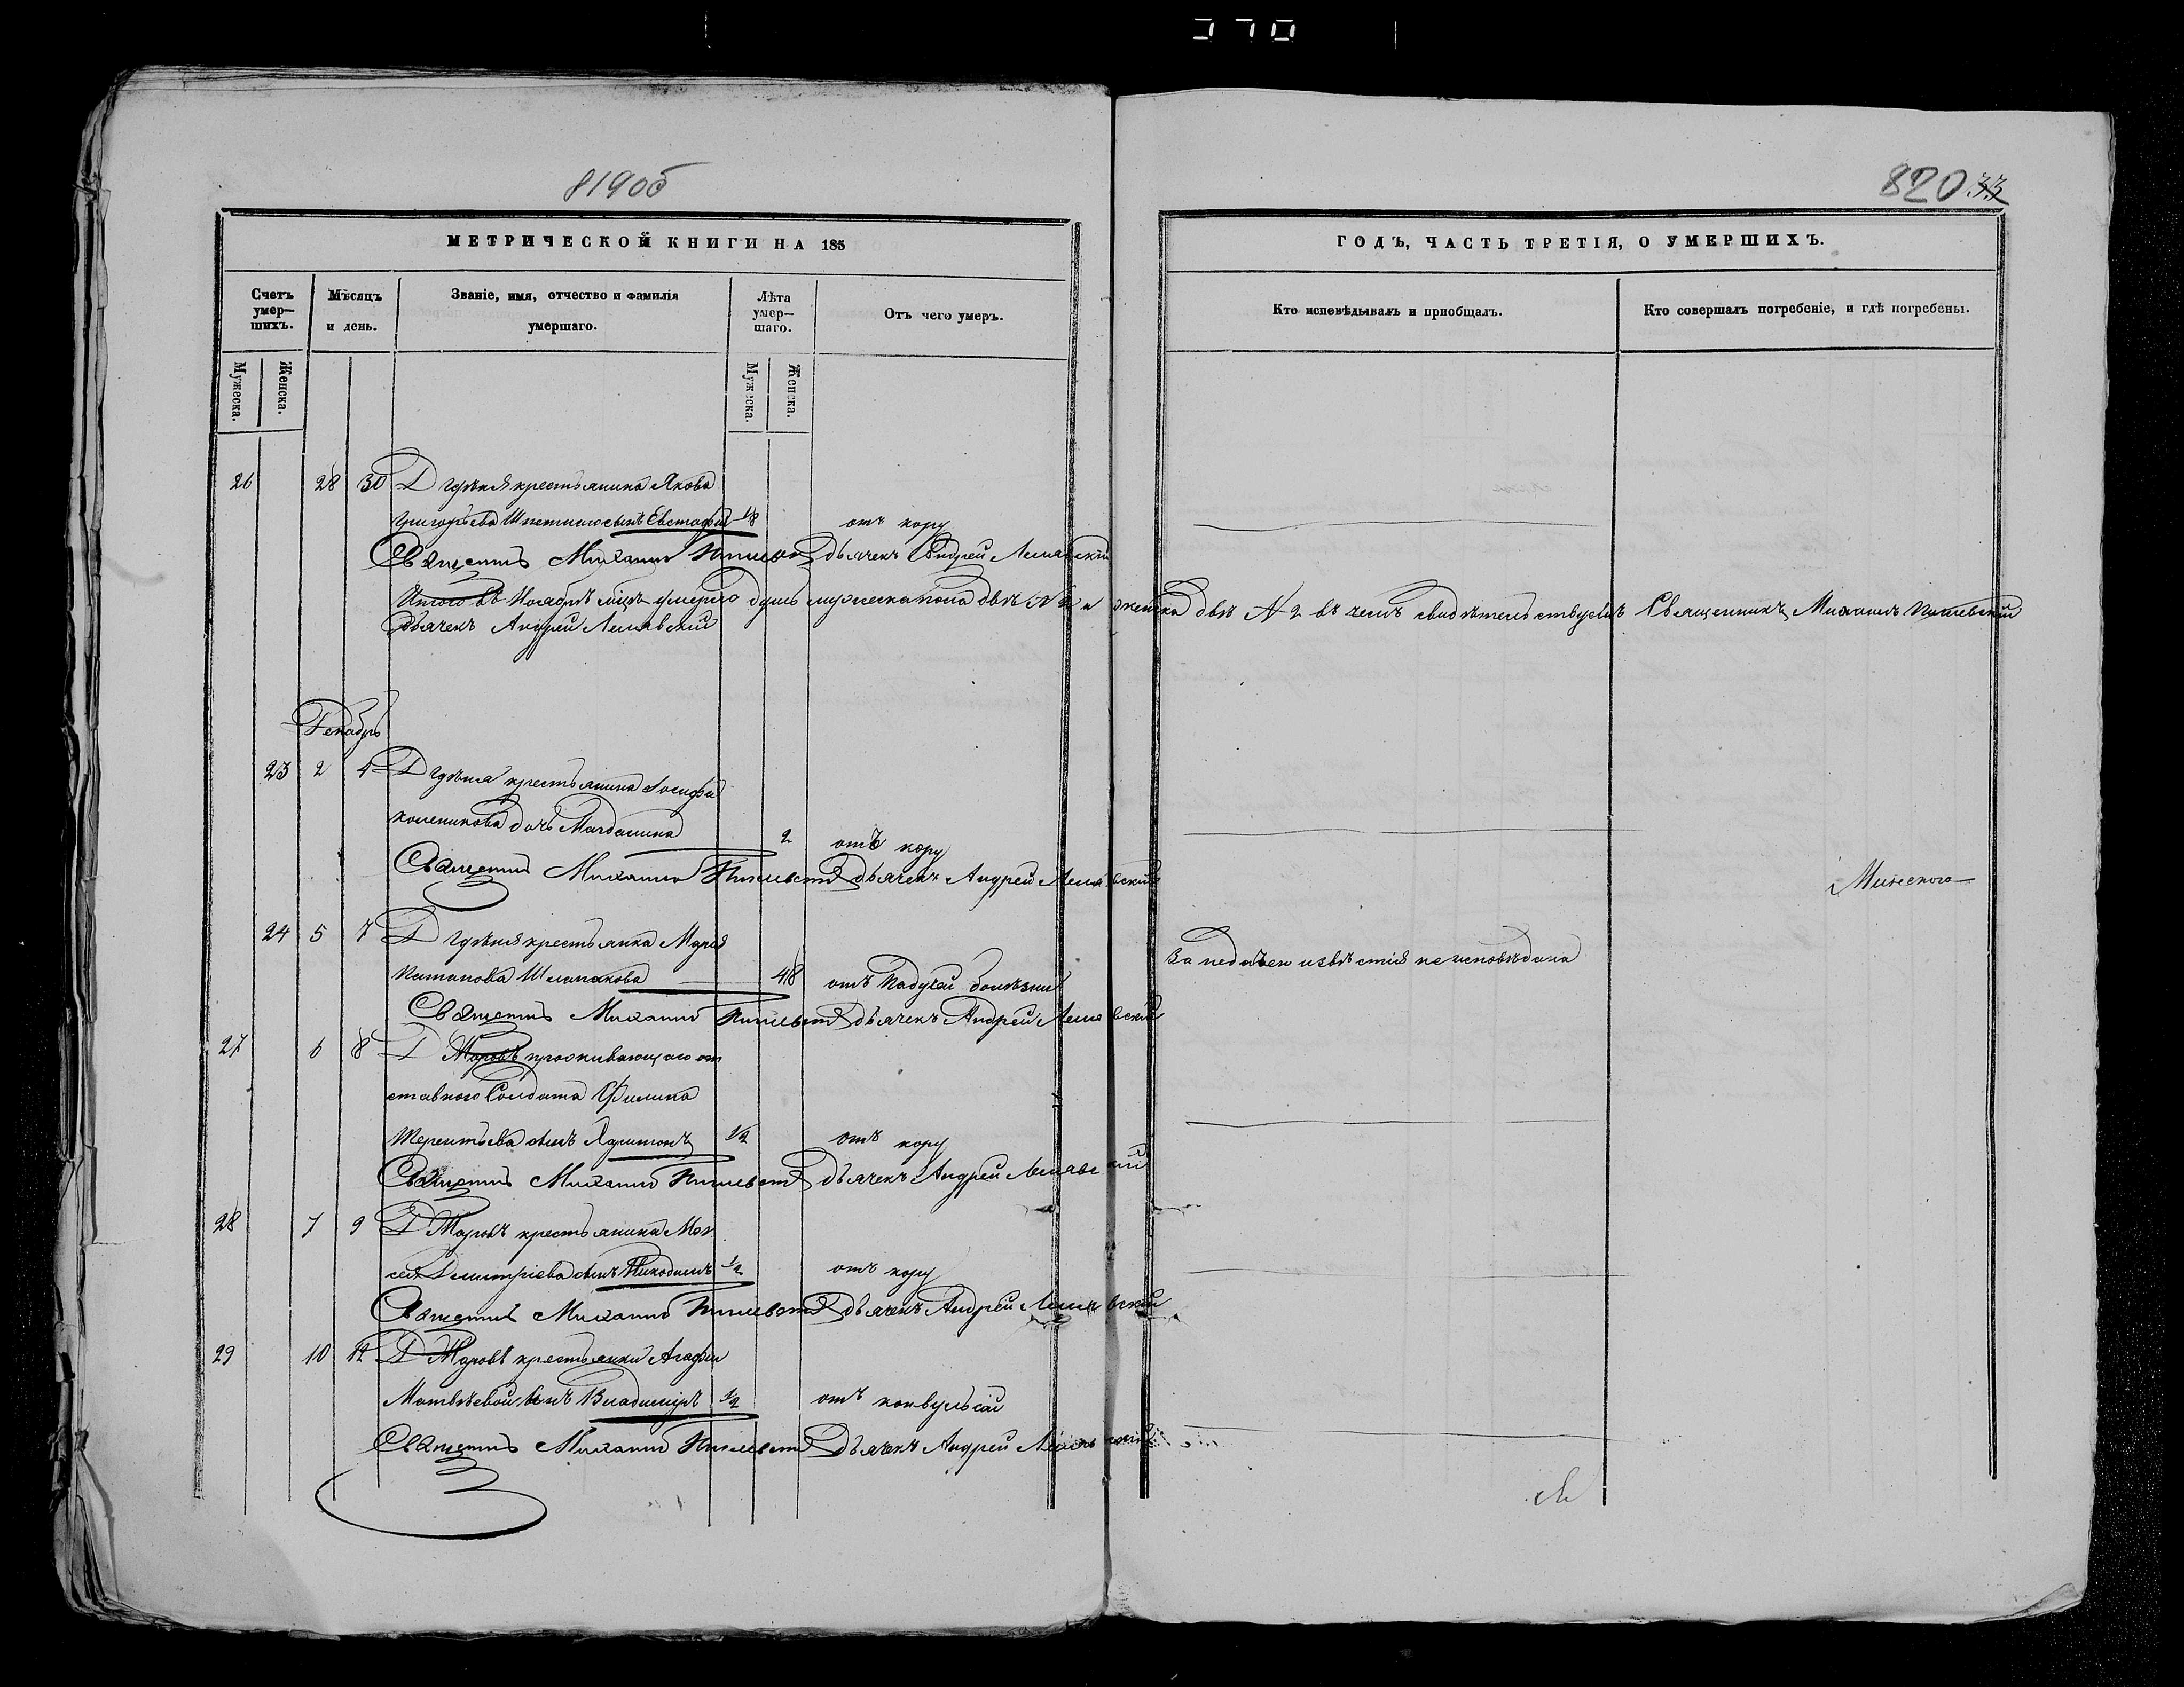 370
819об
820 33
МЕТРИЧЕСКОЙ КНИГИ НА 185
ГОДЪ, ЧАСТЬ ТРЕТІЯ, О УМЕРШИХЪ.
Счетъ умер—шихъ.
Мѣсяцъ и день.
Званіе, имя, отчество и фамилія умершаго.
Лѣта умер—шаго.
Отъ чего умеръ.
Кто исповѣдывалъ и приобщалъ.
Кто совершалъ погребеніе, и гдѣ погребены.
Мужеска.
Женска.
Мужеска.
Женска.
26 28 30 Д крестьянина Якова
Григорьева сынъ Евстафій 1/8 отъ кору
Священникъ Михаилъ Дьячекъ Андрей
Итого въ Ноябрѣ мцѣ умерло душъ мужеска пола двѣ N 2 и женска двѣ N 2 въ чемъ свидѣтельствуемъ Священникъ Михаилъ
Дьячекъ Андрей
Декабрь
23 2 4 Д крестьянина Іосифа
дочь Магдалина 2 отъ кору
Священникъ Михаилъ Дьячекъ Андрей
Минского
24 5 7 Д крестьянка Марія
Потапова 48 отъ Падучей болѣзни
За недачею извѣстія не исповѣдана
Священникъ Михаилъ Дьячекъ Андрей
27 6 8 Д проживающаго от
ставного Солдата Филипа
Терентьева сынъ Харитонъ 1/2 отъ кору
Священникъ Михаилъ Дьячекъ Андрей
28 7 9 Д крестьянина Мой
сея Димитріева сынъ Никодимъ 1/2 отъ кору
Священникъ Михаилъ Дьячекъ Андрей
29 10 12 Д крестьянки Агафіи
Матвѣевой сынъ Владиміръ 1/2 отъ конвульсіи
Священникъ Михаилъ Дьячекъ Андрей